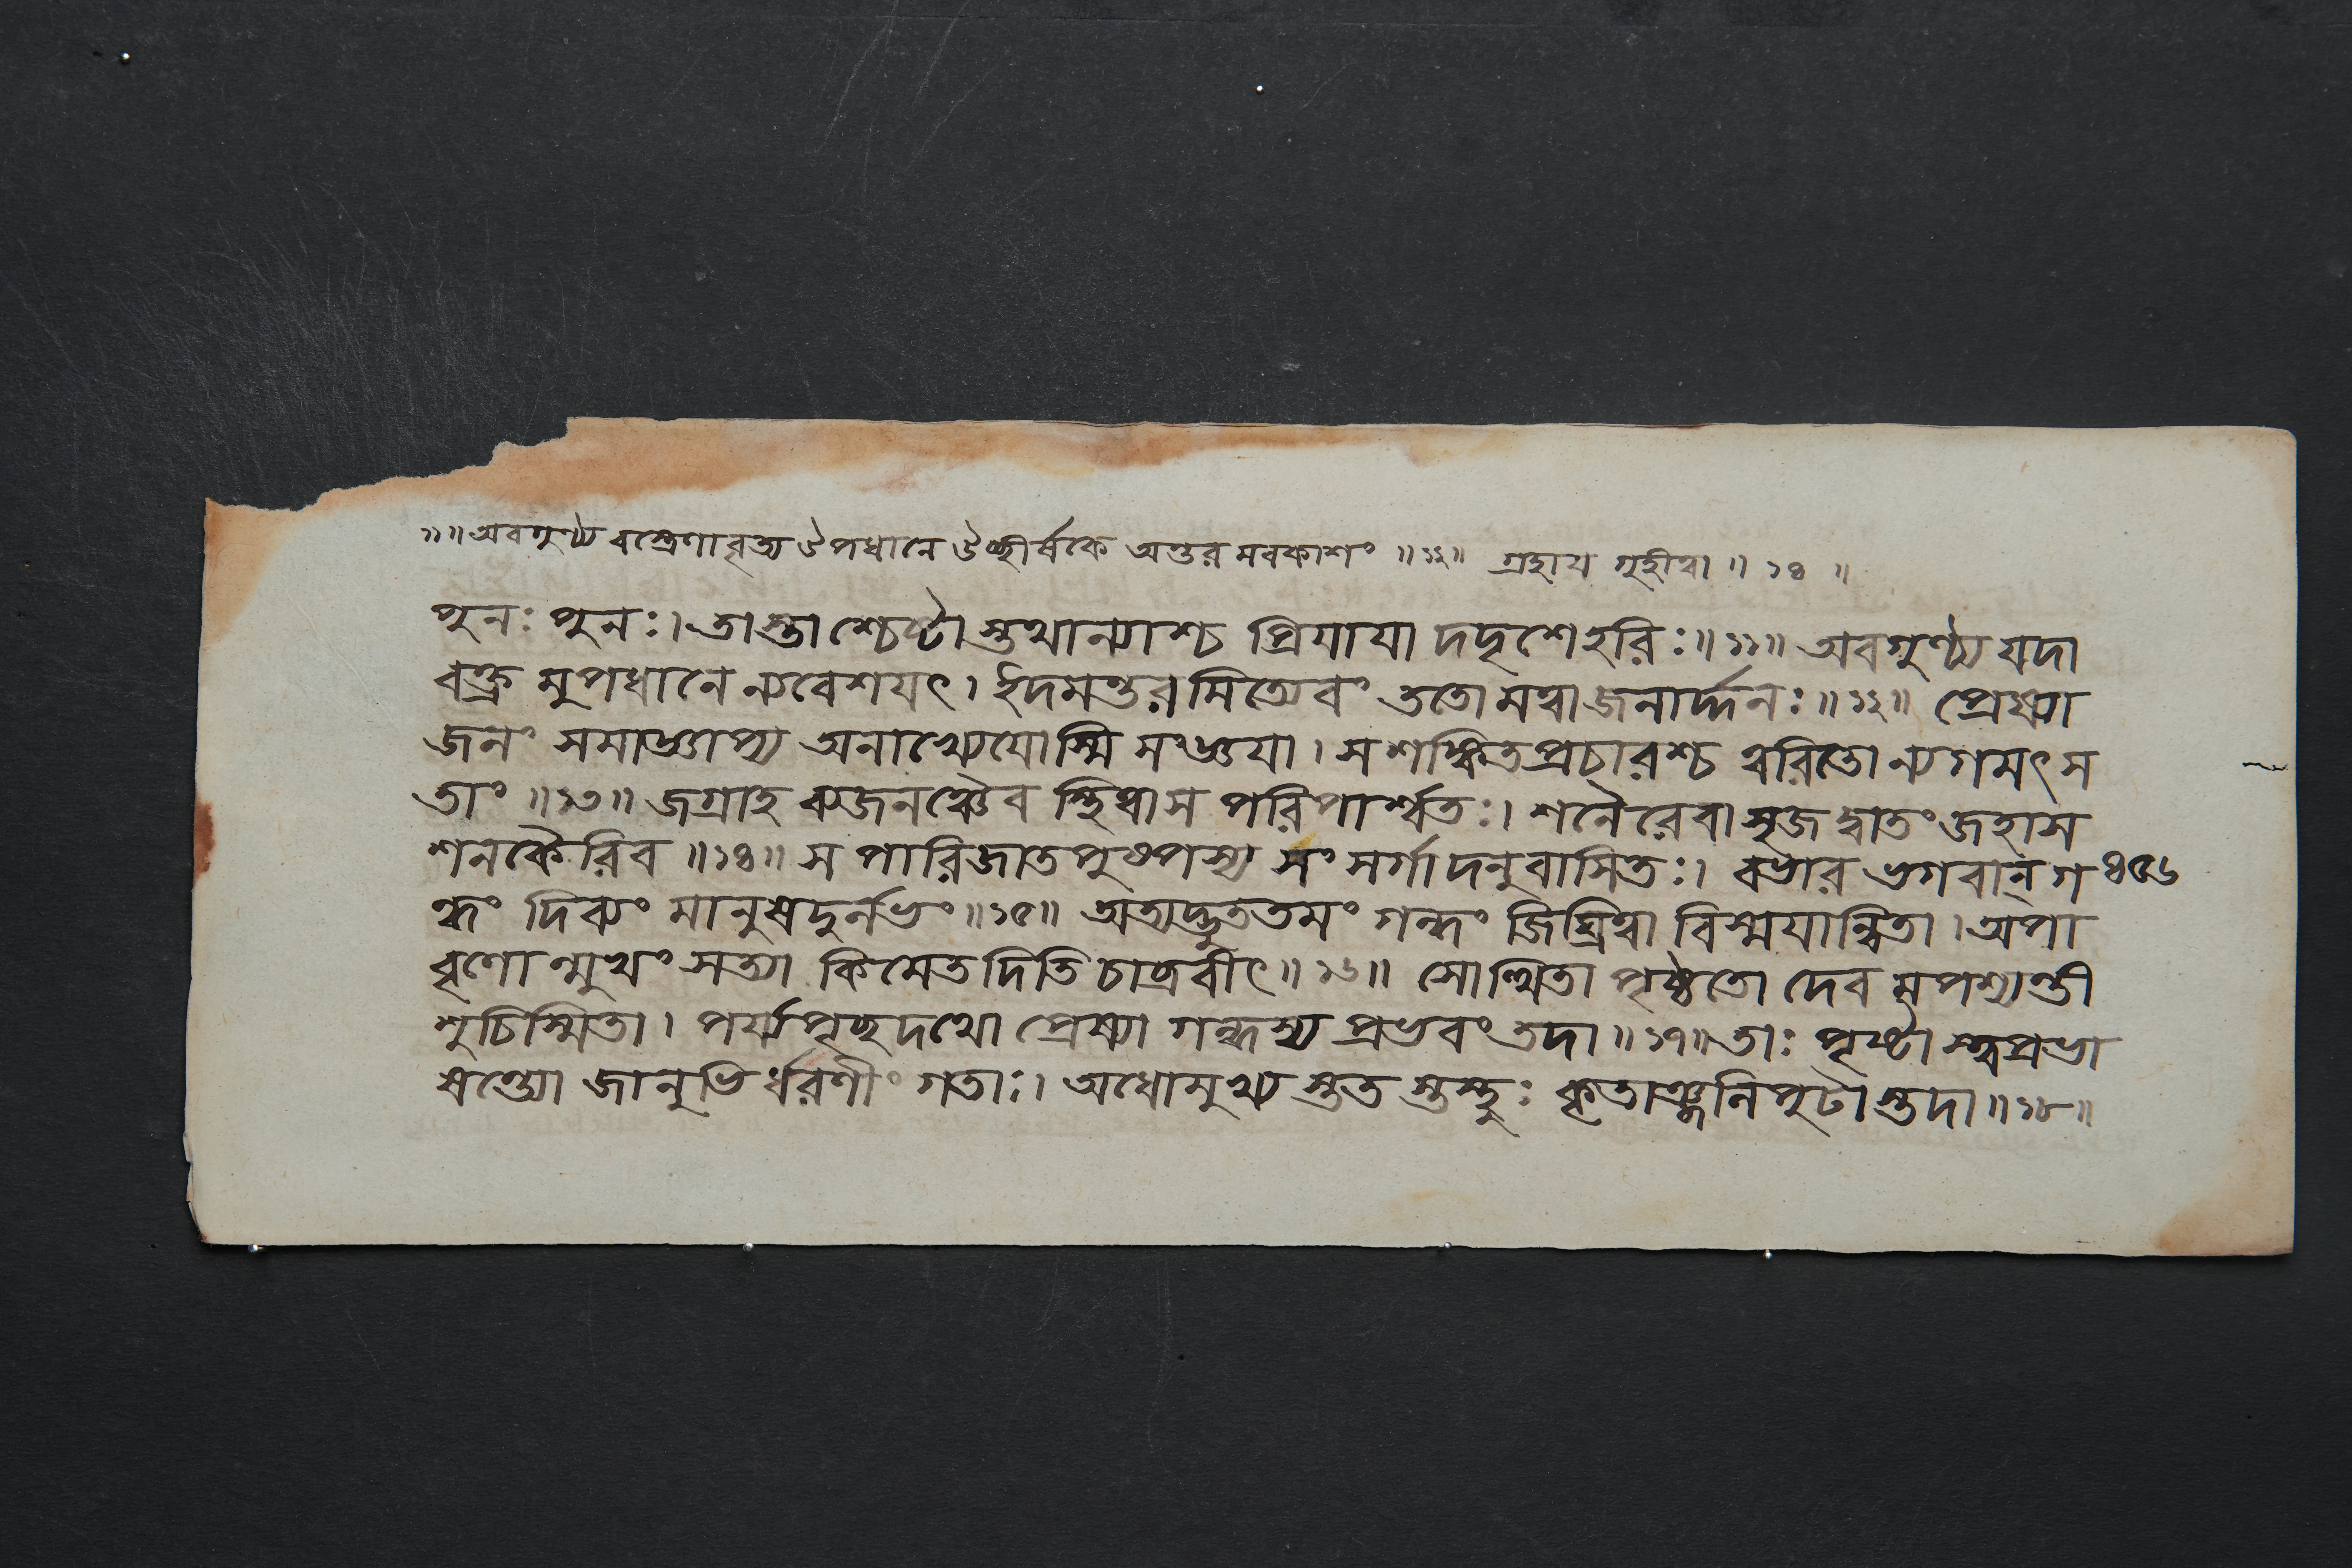 ১১॥ অবগুণ্ঠ্য বস্ত্রেণাবৃত্য উপধানে উচ্ছীর্ষকে অন্তর মবকাশং ॥১২॥ গ্রহায গৃহীত্বা ॥ ১৪ ॥
পুনঃ পুনঃ। তাস্তাশ্চেষ্টা স্তথান্যাশ্চ প্রিযাযা দদৃশে হরিঃ॥১১॥ অবগুণ্ঠ্য যদা
বক্ত্র মুপধানে ন্যবেশযৎ। ইদমন্তরমিত্যেবং ততো মত্বা জনার্দ্দনঃ॥১২॥ প্রেষ্যা
জনং সমাজ্ঞাপ্য অনাখ্যেযোস্মি সংজ্ঞযা। স শঙ্কিতপ্রচারশ্চ ত্বরিতো ন্যগমৎ স
তাং ॥১৩॥ জগ্রাহ ব্যজনঞ্চৈব স্থিত্বা স পরিপার্শ্বতঃ। শনৈরেবাসৃজদ্বাতং জহাস
শনকৈরিব ॥১৪॥ স পারিজাতপুষ্পস্য সংসর্গাদনুবাসিতঃ। বভার ভগবান্ গ ৪৫৬
ন্ধং দিব্যং মানুষদুর্লভং॥১৫॥ অত্যদ্ভুততমং গন্ধং জিঘ্রিত্বা বিস্মযান্বিতা। অপা
বৃণোন্মুখং সত্যা কিমেতদিতি চাব্রবীৎ॥১৬॥ সোত্থিতা পৃষ্ঠতো দেব মপশ্যন্তী
শুচিস্মিতা। পর্য্যপৃচ্ছদথো প্রেষ্যা গন্ধস্য প্রভবং তদা॥১৭॥ তাঃ পৃষ্টা স্ত্বপ্রভা
ষন্ত্যো জানুভি র্ধরণীং গতাঃ। অধোমুখ্য স্তত স্তস্থুঃ কৃতাঞ্জলিপুটা স্তদা॥১৮॥